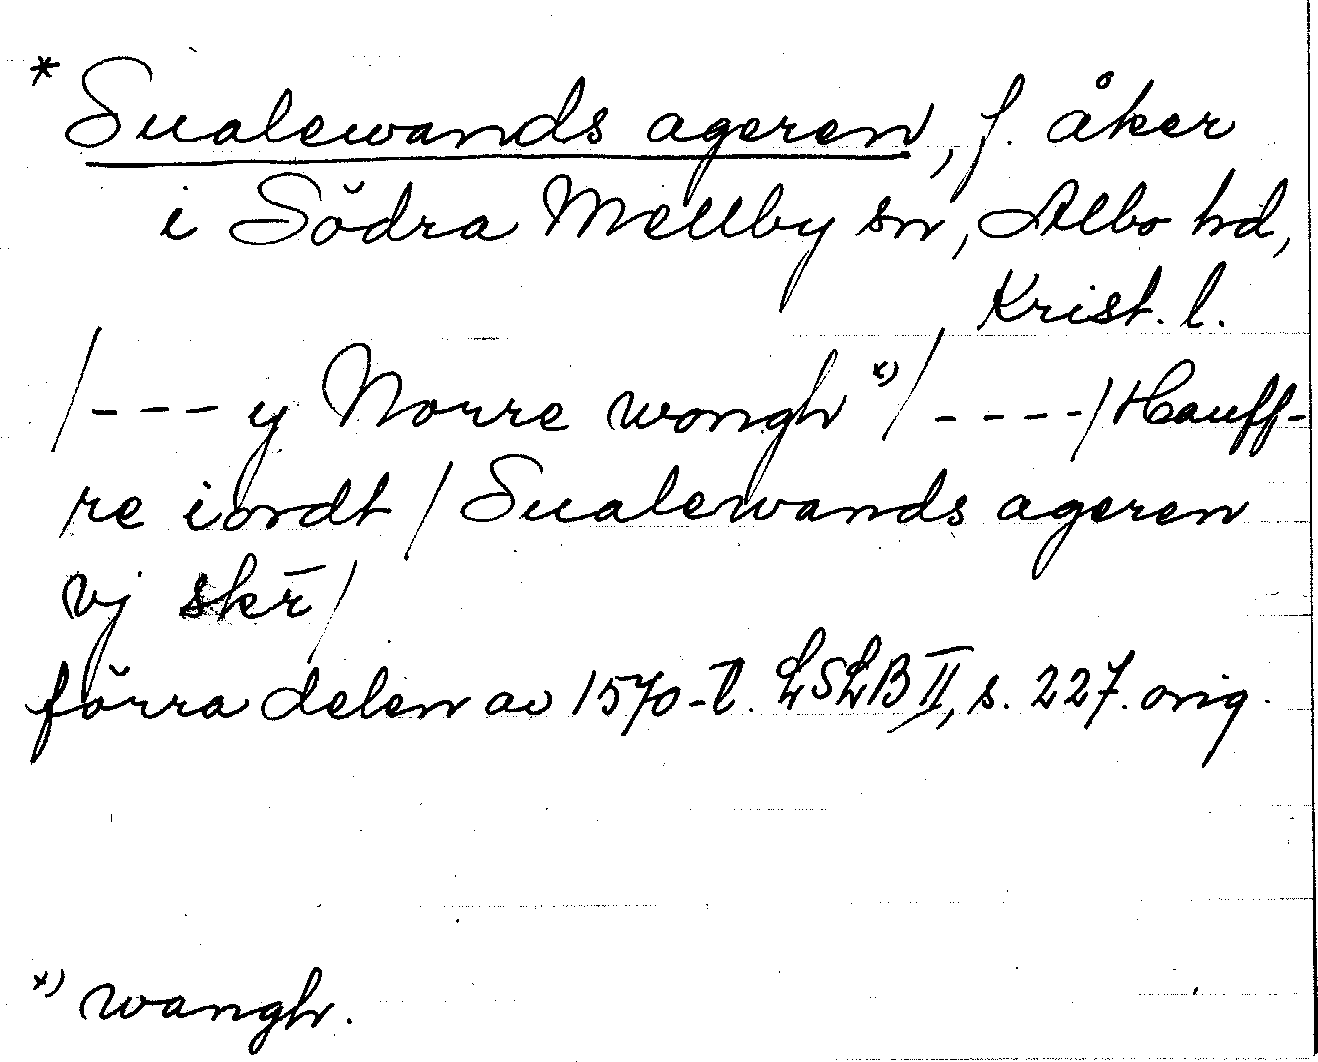 * Sualewands ageren, f. åker
i Södra Mellby sn, Albo hd,
Krist. l.
/--- y Norre wongh *)/ ----/ Hauff-
re iordt / Sualewands ageren
vj skr̄ /
förra delen av 1570-t. LSLB II, s. 227. orig.
*) wangh.